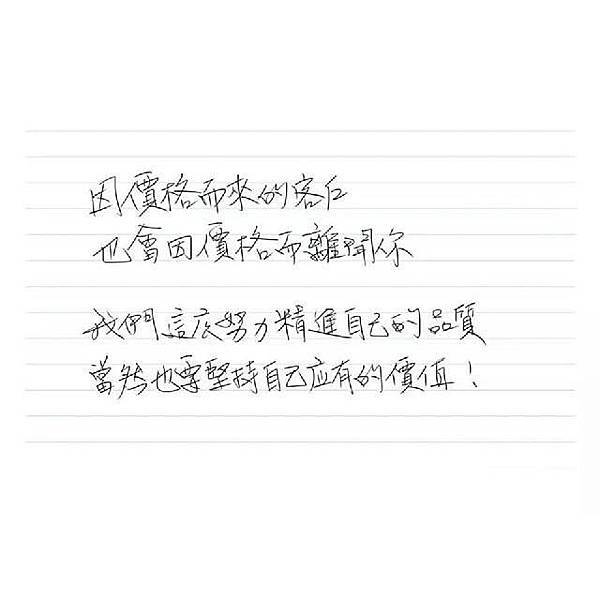 因價格而來的客戶
也會因價格而離開你
我們這麼努力精進自己的品質
當然也要堅持自己应有的價值！